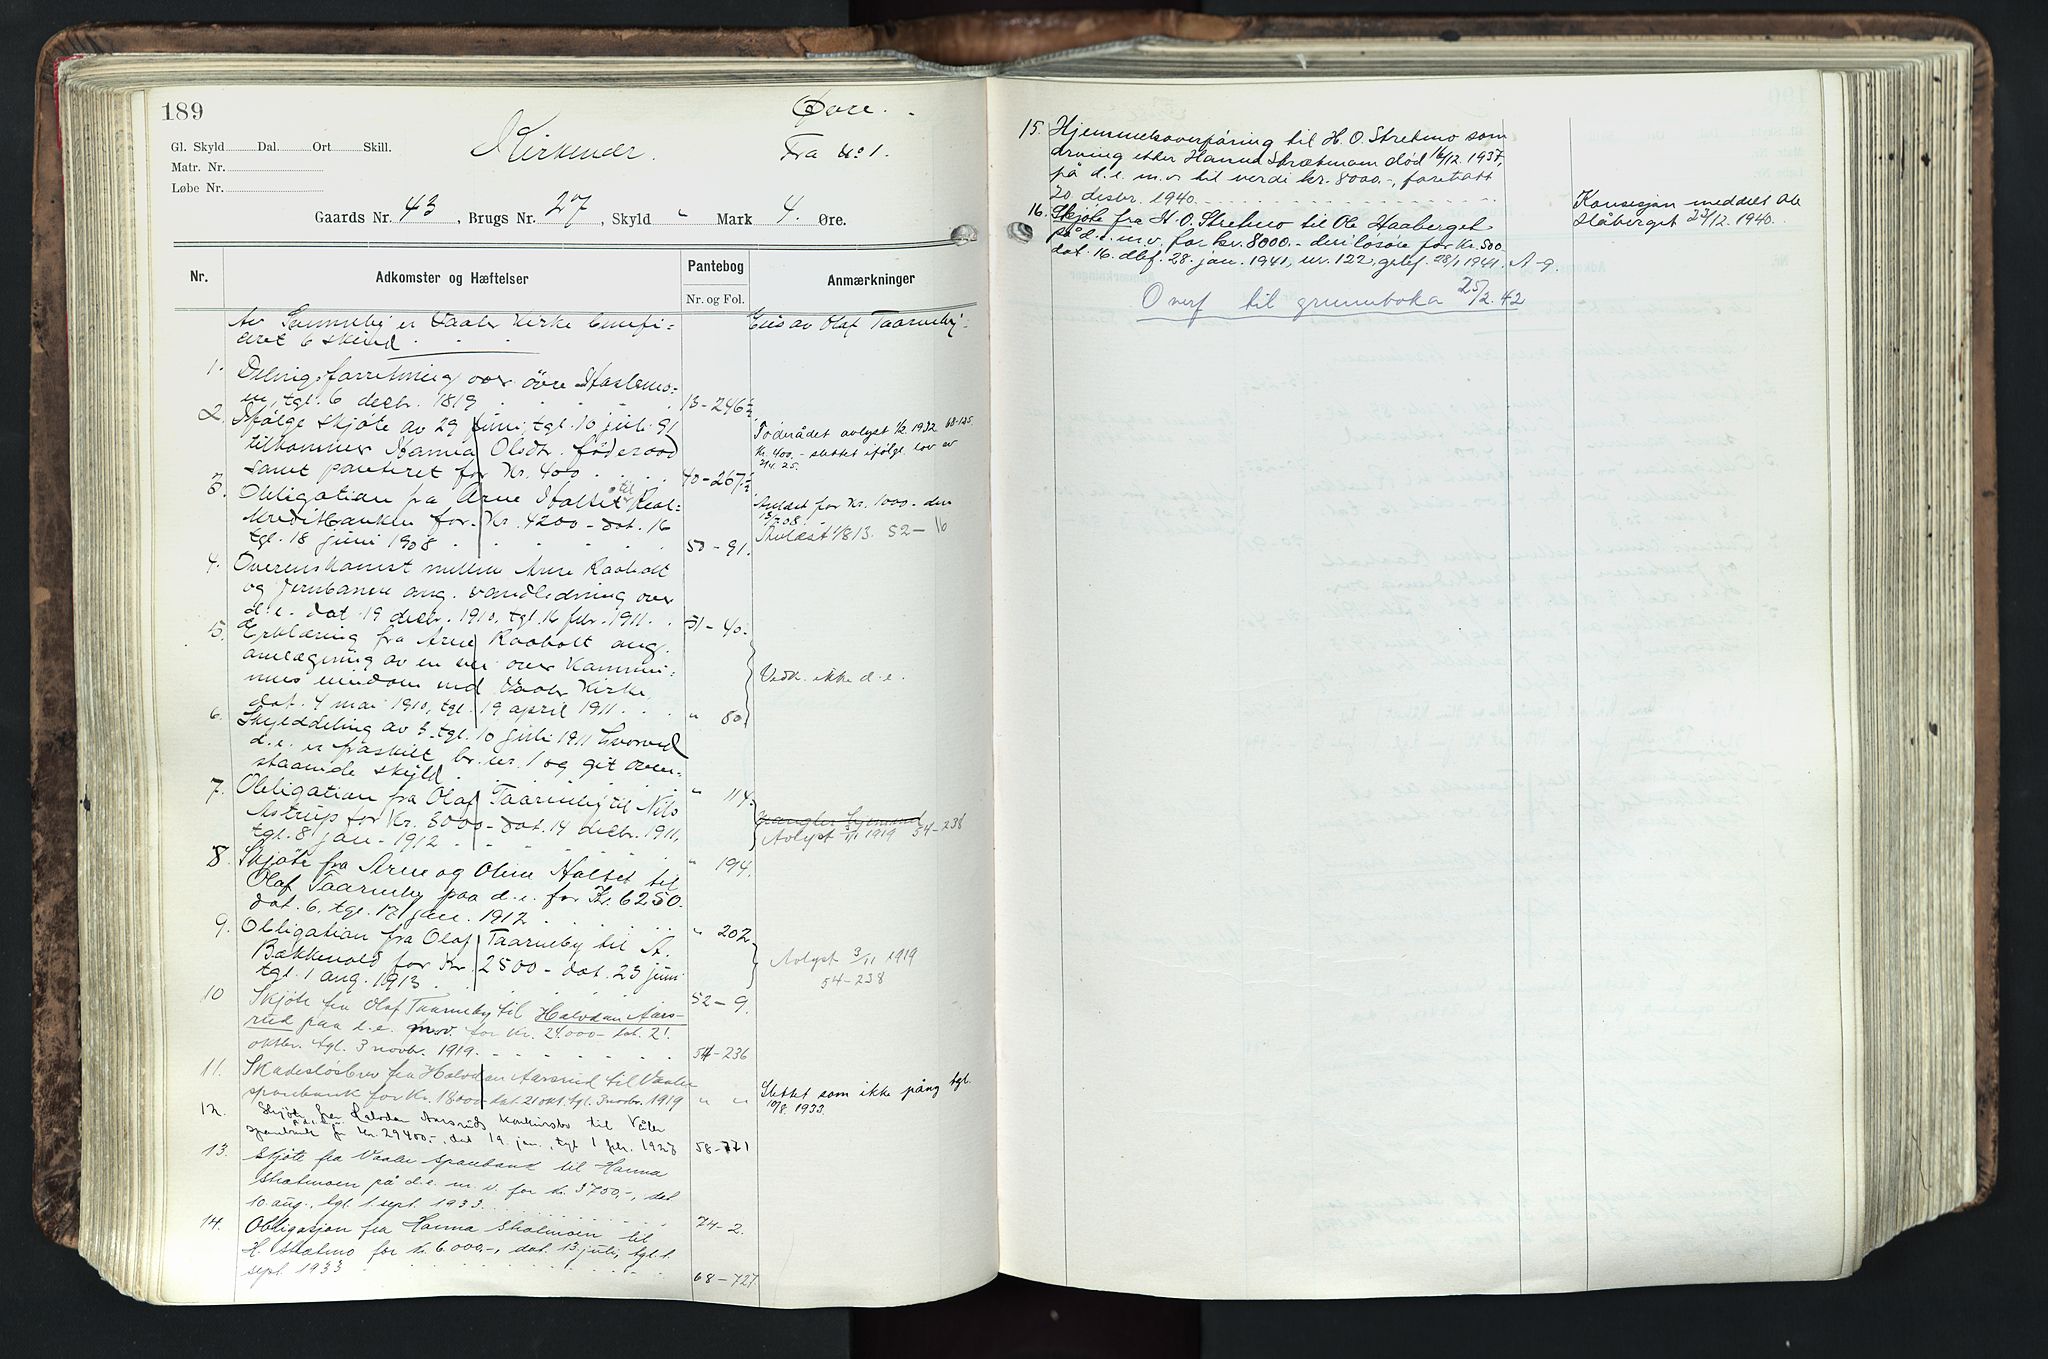 189
Øvre.
Gl. Skyld Dal. Ort Skill.
Kirkenær.
Fra No 1.
Matr. Nr.
Løbe Nr.
Gaards Nr. 43, Brugs Nr. 27, Skyld " Mark 4 Øre.
Nr. Adkomster og Hæftelser Pantebog Anmærkninger
Nr. og Fol.
Av er Vaaler Kirke benefi- Eies av Olaf Taarneby.
ceret 6 skind
1. Delingsforretning over övre Haslemo-
en, tgl. 6 decbr. 1819 13-246½
2. Ifølge skjøte av 29 juni, tgl. 10 juli 91
tilkommer Hanna Olsdtr. föderaad
samt panteret for Kr. 400 40-267½
Föderådet avlyst 1932 68-125.
Kr. 400,- slettet ifølge lov av
25.
3. Obligation fra Arne Halset til Real-
kreditbanken for Kr. 4200 - dat. 16
tgl. 18 juni 1908 50-91.
for Kr. 1000.- den
08.
52-16
4. Overenskomst mellem Arne Raaholt
og Jernbanen ang. vandledning over
d. e. dat 19 decbr. 1910, tgl. 16 febr. 1911. 51-40.
5. Erklæring fra Arne Raaholt ang.
anlægning av en vei over Kommu-
nens eiendom ved Vaaler Kirke,
dat. 4 mai 1910, tgl. 19 april 1911. " 80
Vedk. ikke d. e.
6. Skylddeling av tgl. 10 juli 1911 hvorved
d. e. er fraskilt br. nr. 1 og git oven-
staaende skyld " 114.
7. Obligation fra Olaf Taarneby til Nils
Astrup for Kr. 8000 - dat. 14 decbr. 1911,
tgl. 8 jan. 1912 " 194.
mangler hjemmel
Avlyst 3/11 1919 54-238
8. Skjöte fra Arne og Oline Halset til
Olaf Taarneby paa d. e. for Kr. 6250.
dat. 6. tgl. 17 jan. 1912 " 202
9. Obligation fra Olaf Taarneby til A.
Bækkevold for Kr. 2500 - dat. 23 juni
tgl. 1 aug. 1913 52-9.
Avlyst 3/11 1919
54-238
10 Skjöte fra Olaf Taarneby til Halvdan Aars-
rud paa d. e. m.v. for Kr. 24000 - dat. 21
oktbr. tgl. 3 novbr. 1919. 54-236
11. Skadeslösbrev fra Halvdan Aarsrud til Vaaler
sparebank for Kr. 18000 dat. 21 okt. tgl. 3 novbr. 1919 " "
Slettet som ikke pång tgl.
10/8. 1933.
12. Skjöte fra Halvdan Aarsruds konkursbo til Våler
sparebank på d. e. for kr. 29400,-, dat 19. jan., tgl 1 febr. 1928 58-771
13. Skjöte fra Vaaler sparebank til Hanna
Strætmoen på d. e. m. v. for kr. 3700,-, dat
10. aug., tgl. 1. sept. 1933. 74-2.
14. Obligasjon fra Hanna Strætmoen til
H. Strætmo for kr. 6.000,-, dat. 13. juli, tgl. 1.
sept. 1933 68-727.
15. Hjemmelsoverföring til H. O. Stretmo som
arving etter Hanna Strætmoen död 16/12. 1937,
på d. e. m. v. til verdi kr. 8000.-, foretatt
20. desbr. 1940.
16. Skjöte fra H. O. Stretmo til Ole Haaberget
på d. e. m. v. for kr. 8000.- derav lösöre for kr. 500
dat. 16. dbf. 28. jan. 1941, nr. 122, 28/1 1941. A-9.
Konsesjon meddelt Ole
Håberget 23/12. 1940.
Overf til grunnboka 25/2.42